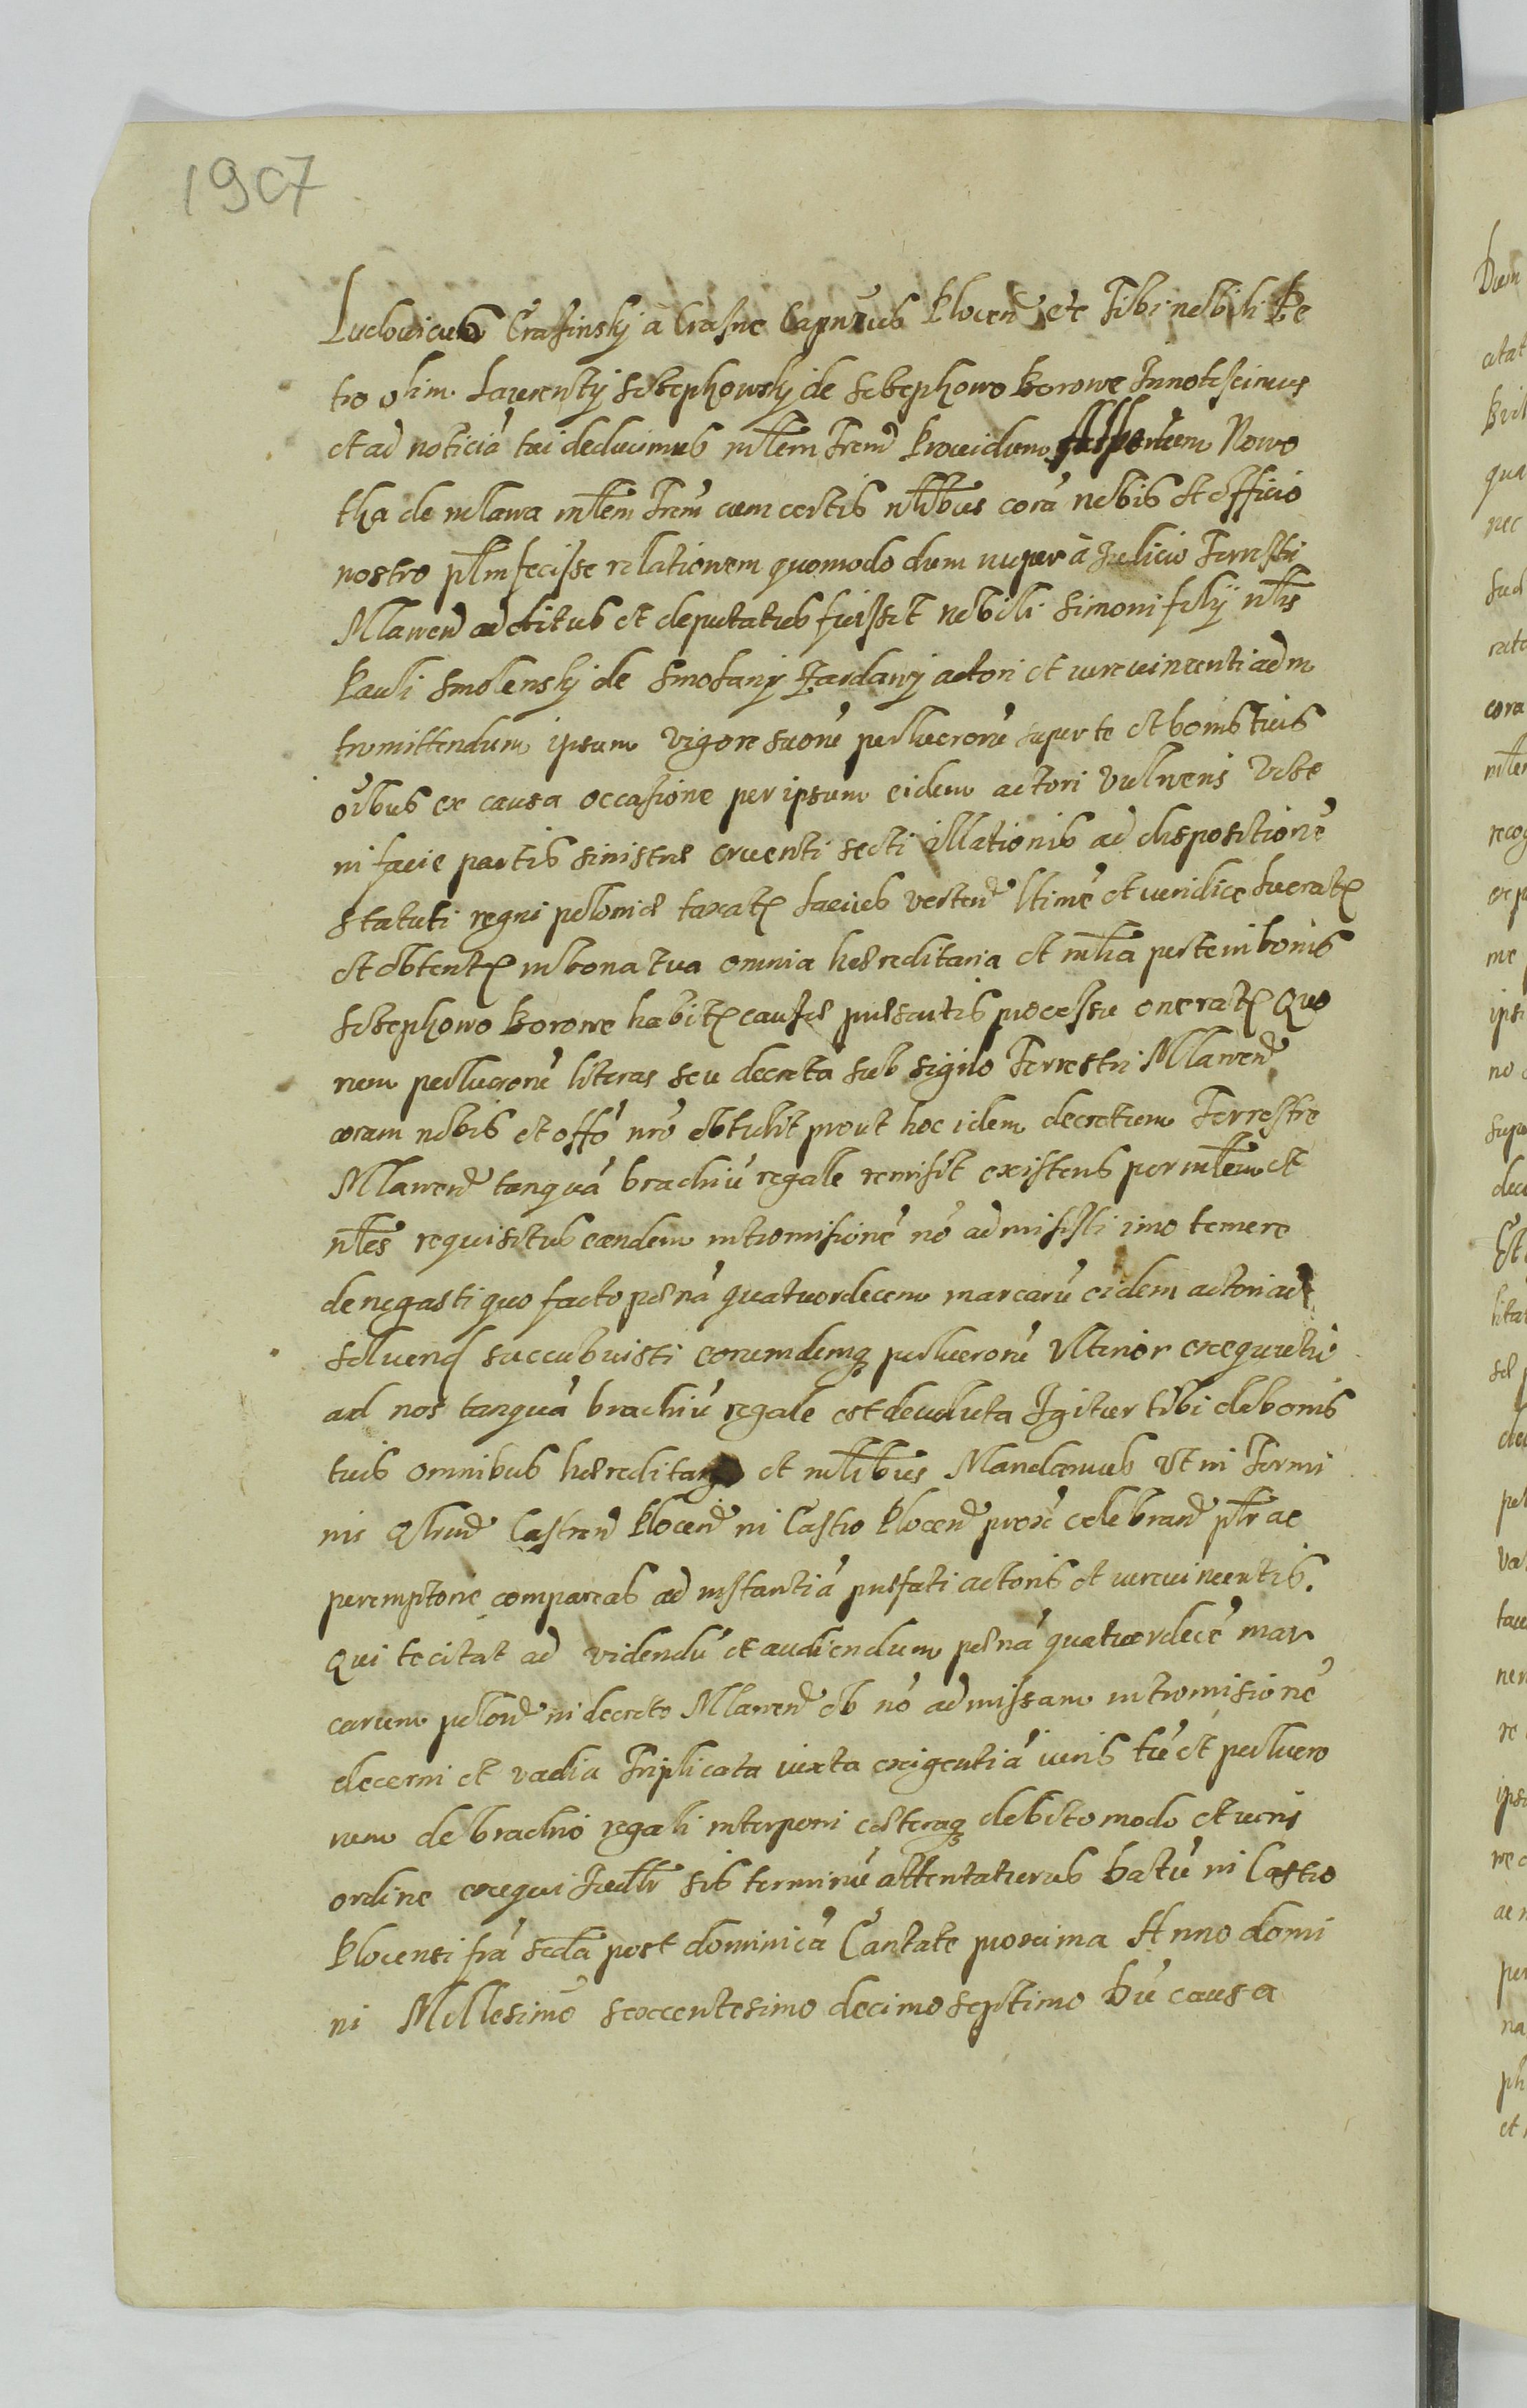 1907
Ludouicus Crasinsky à Crasne Capneus Plocen etc Tibi nobili Pe
tro olim Laurentÿ Szczephowsky de Szczephowo Borowe Innotescimus
et ad noticiā tui deducimus mlem Trem Prouidum Nowo
tha de Mlawa mlem Trm cum certis nlibus corā nobis et officio
nostro plm fecisse relationem quomodo dum nuper à Judicio Terrestri
Mlawen additus et deputatus fuisset nobili Simoni filÿ nlis
Pauli Smolensky de Smolany Zardawy actori et iurevincenti ad in
tromittendum ipsum vigore suorū perlucrorū super te et bonis tuis
oībus ex causa occasione per ipsum eidem actori vulneris
in facie partis sinistræ cruenti secti illationis ad dispositionē
Statuti regni poloniæ taxat vertend ltime et veridice lucrat
et obtent in bona tua omnia hæreditaria et mlia perte in bonis
Szczephowo Borowe habit causæ præsentis processu onerat Quo
rum perlucrorū literas seu decreta sub sigilo Terrestri Mlawen
coram nobis et offō nrō obtulit prout hoc idem decretum Terrestre
Mlawen tanquā brachiū regale remisit existens per mlem et
nles requisitus eandem intromisionē nō admisisti imo temere
denegasti quo facto pœnā quatuordecem marcarū eidem actori ad
soluend succubuisti eorumdemq perlucrorū Vlterior exequutio
ad nos tanquā brachiū regale est deuoluta Igitur tibi de bonis
tuis omnibus hæreditarÿs et mlibus Mandamus Vt in Termi
nis Qlrund Castren Plocen in Castro Plocen prox celebrand plr ac
peremptorie compareas ad instantiā præfati actoris et iurevincentis.
Qui te citat ad videndū et audiendum pœnā quatuordecē mar
carum polon in decreto Mlawen ob nō admissam intromisionē
decerni et vadia Triplicata iuxta exigentiā iuris tū et perlucro
rum de brachio regali interponi cæteraq debito modo et iuris
ordine exequi Judlr sis terminū attentaturus Datū in Castro
Plocensi frā scda post dominicā Cantate proxima Anno domi
ni Millesimo sexcentesimo decimo septimo hū causa